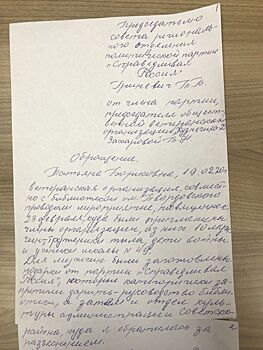 Председателю
совета региональ-
ного отделения
политической партии
"Справедливая
Россия"
Гришкевич Т.Б.
от члена партии,
председателя общест-
венной ветеранской
организации
Захаровой Т.Н
Обращение.
Татьяна Борисовна, 19.02.20г
ветеранская организация, совмест-
но с библиотекой им. Твардовского
провели мероприятие, посвященное
23 февраля, куда были приглашены
члены организации, из них 10 мужчин
труженики тыла, дети войны
и ученики школы №
Для мужчин были заготовлены
подарки от партии "Справедливая
Россия", которые категорически за-
претили дарить руководство библи-
отеки, а затем и отдел куль-
туры администрации Советского
района, куда я обратилась за
разъяснением.